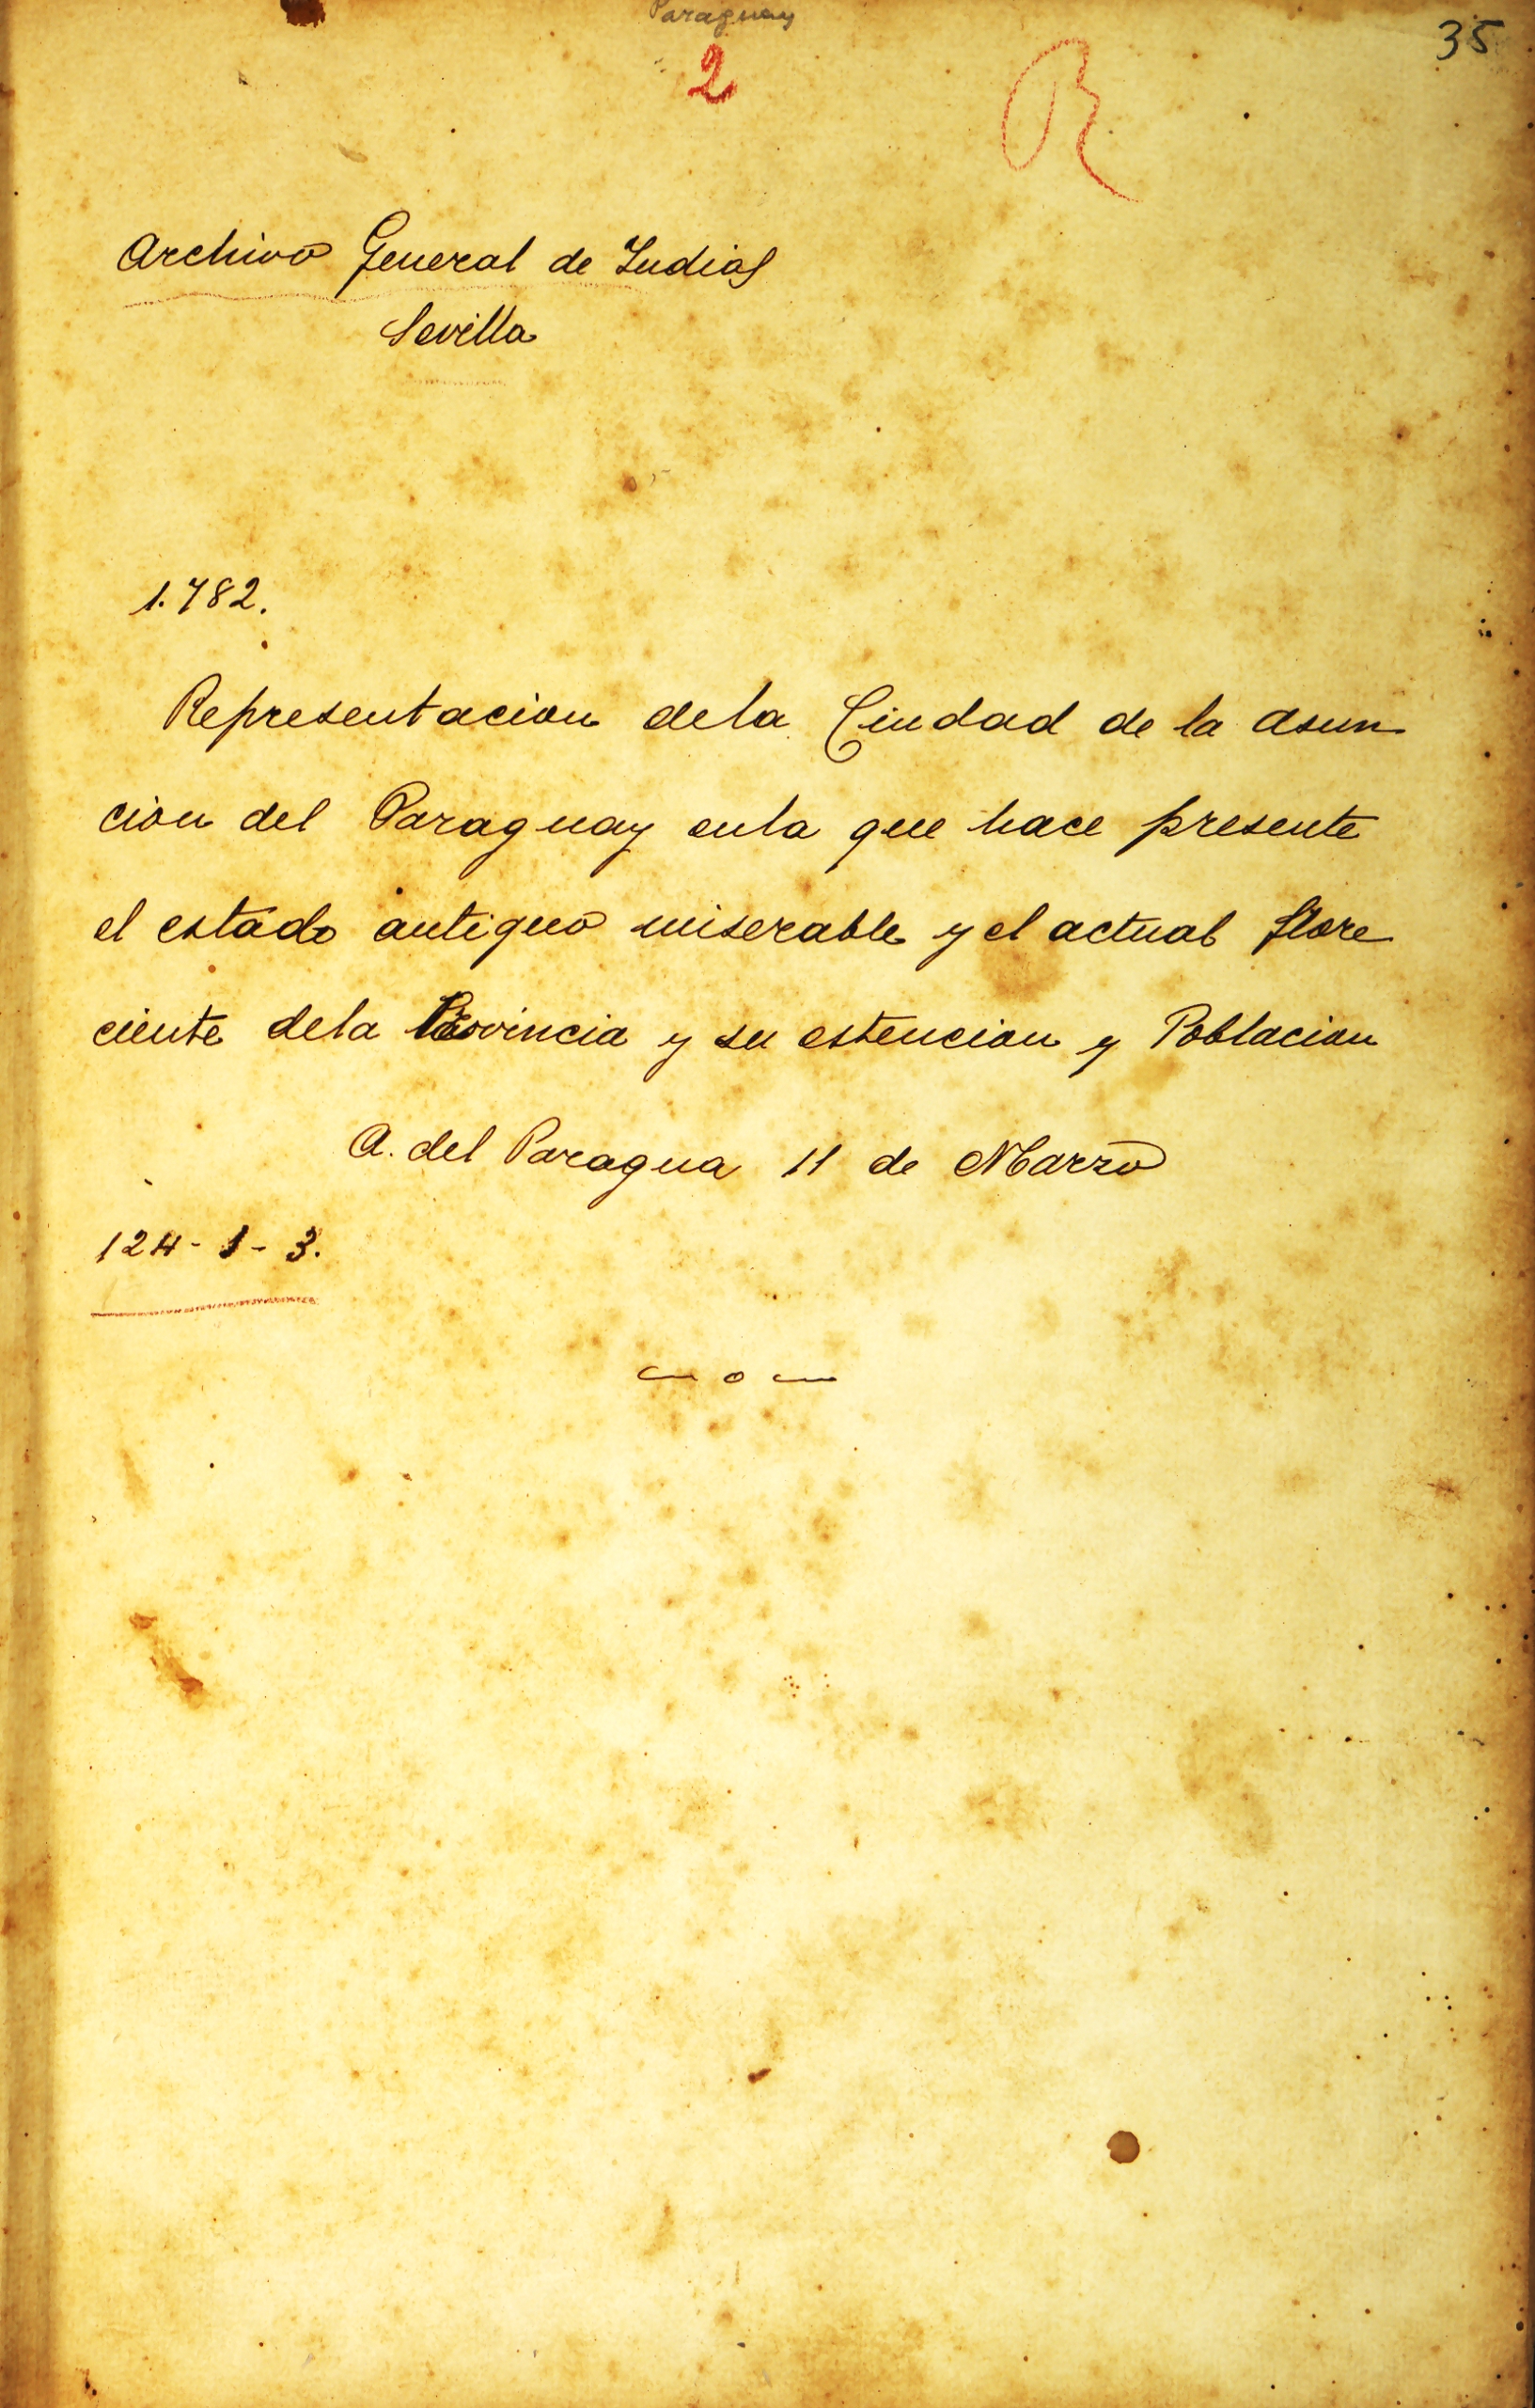 Paraguay
35
2
R
Archivo General de Indias
Sevilla
1.782.
Representacion dela Ciudad de la Asun
cion del Paraguay enla que hace presente
el estado antiguo miserable y el actual flore
ciente dela Provincia y su estencion y Poblacion
A. del Paragua 11 de Marzo
124-1-3.